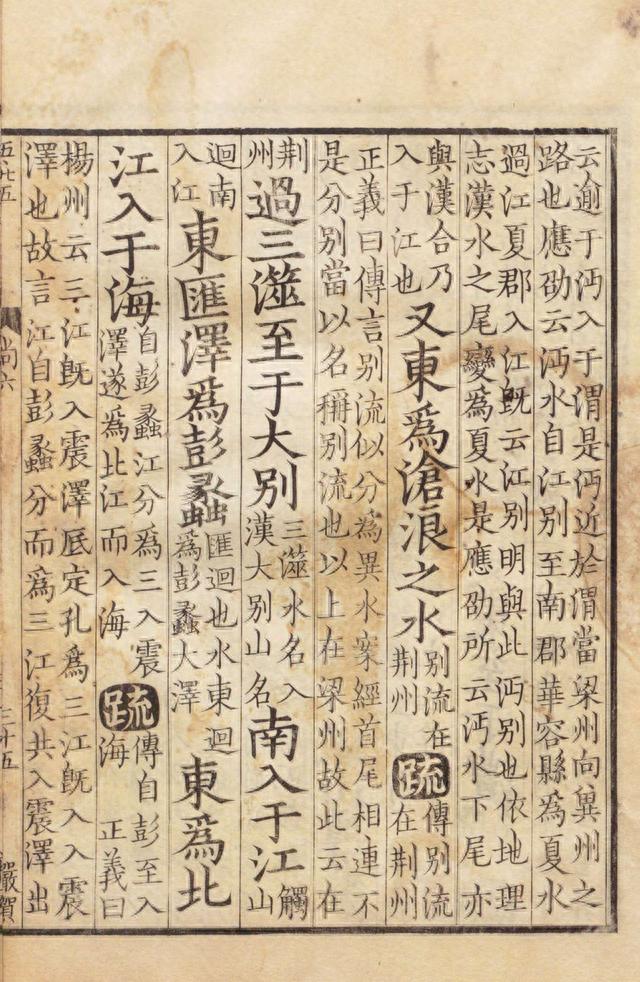 云逾于沔入于渭是沔近於渭當梁州向冀州之
路也應劭云沔水自江別至南郡華容縣為夏水
過江夏郡入江旣云江別明與此沔別也依地理
志漢水之尾變為夏水是應劭所云沔水下尾亦
與漢合乃
入于江也
又東爲滄浪之水
別流在
荆州
疏
傳別流
在荆州
正義曰傳言別流似分為異水案經首尾相連不
是分別當以名稱別流也以上在梁州故此云在
荆
州
過三澨至于大別
三澨水名入
漢大別山名
南入于江
觸
山
迴南
入江
東匯澤爲彭蠡
匯迴也水東迴
為彭蠡大澤
東爲北
江入于海
自彭蠡江分為三入震
澤遂為北江而入海
疏
傳自彭至入
海 正義曰
楊州云三江旣入震澤厎定孔為三江旣入入震
澤也故言江自彭蠡分而為三江復共入震澤出
尚六
三十五
嚴賀